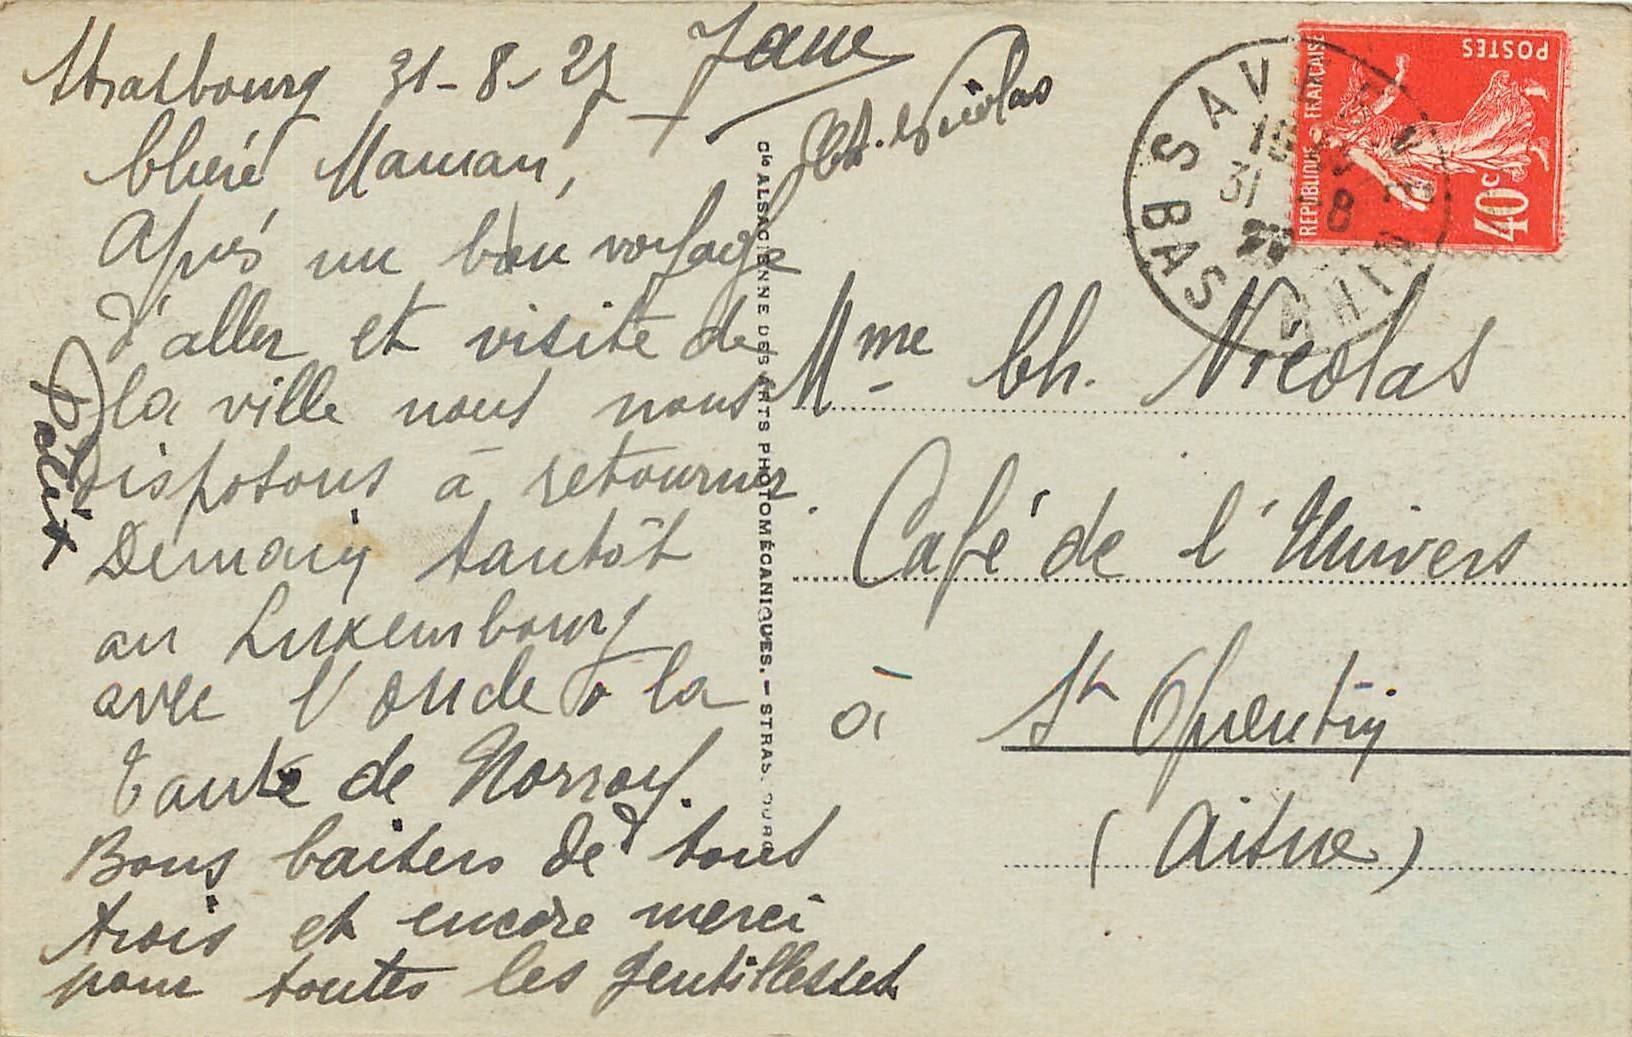 Strasbourg 31-8-27
Chère Maman,
Après un bon voyage
d'aller et visite de
la ville nous nous
disposons à retourner
Demain tantôt
au Luxembourg
avec l'oncle & la
Tante de Norroy.
Bons baisers de tous
trois et encore merci
pour toutes les gentillesses
Jane
Ch. Nicolas
Cie ALSACIENNE DES ARTS PHOTOMÉCANIQUES. — STRASBOURG
POSTES
REPUBLIQUE FRANÇAISE
40c
31
8
BAS
Mme Ch. Nicolas
Café de l'Univers
à St Quentin
(Aisne)